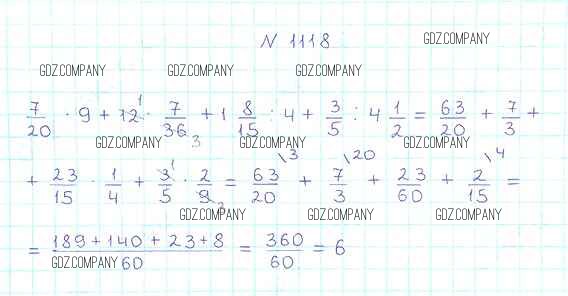 N 1118
GDZ.COMPANY
GDZ.COMPANY GDZ.COMPANY GDZ.COMPANY
7/20 · 9 + 12¹ · 7/36 3 + 1 8/15 : 4 + 3/5 : 4 1/2 = 63/20 + 7/3 +
GDZ.COMPANY GDZ.COMPANY GDZ.COMPANY
+ 23/15 · 1/4 + 3¹/5 · 2/9 3 = 63\3/20 + 7\20/3 + 23/60 + 2\4/15 =
GDZ.COMPANY GDZ.COMPANY GDZ.COMPANY
= 189 + 140 + 23 + 8/60 = 360/60 = 6
GDZ.COMPANY